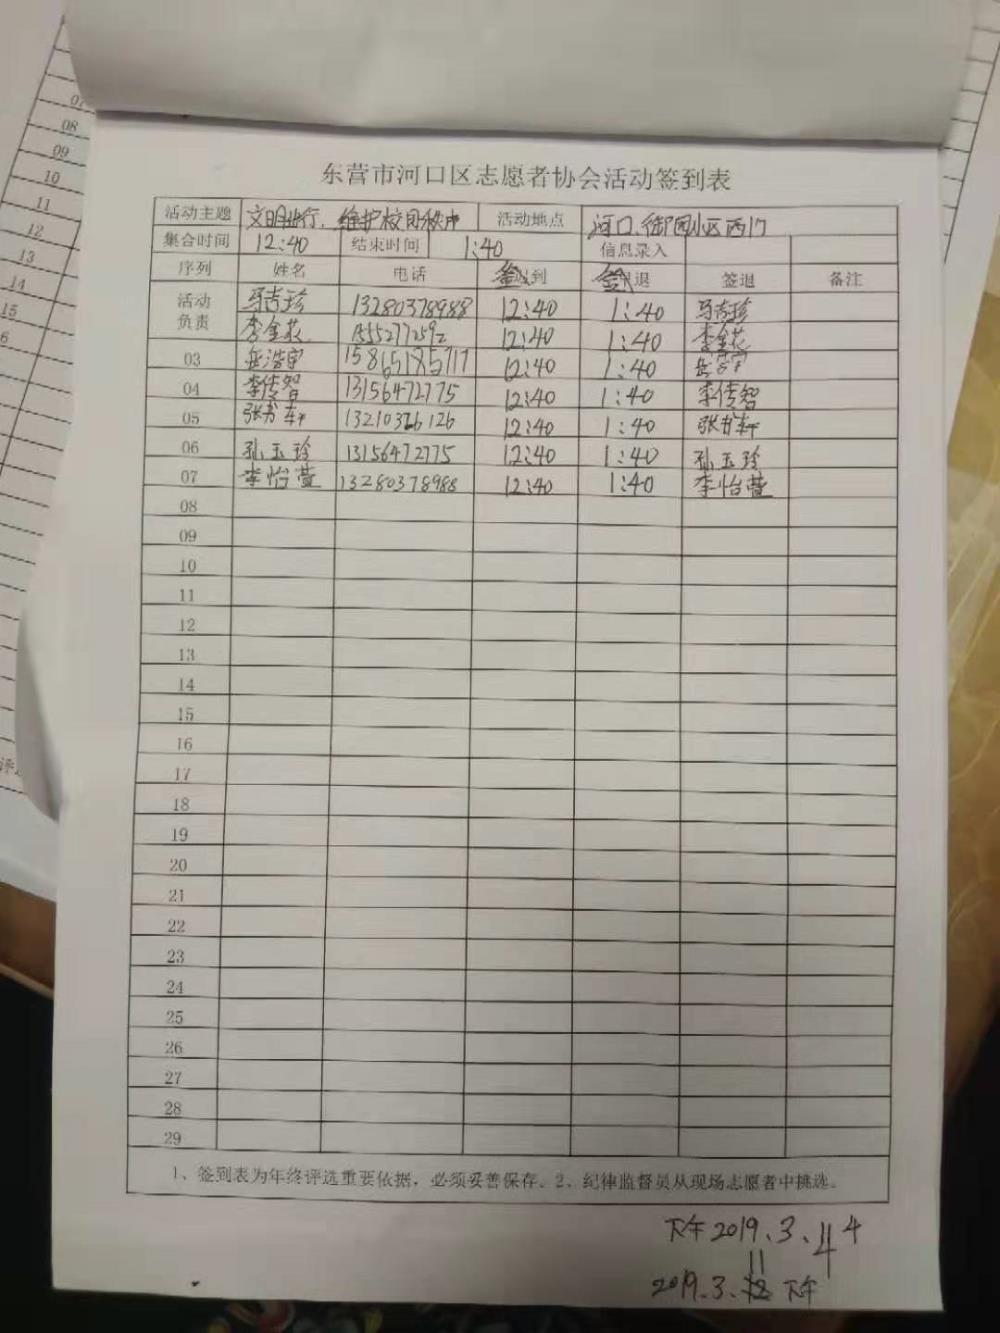 东营市河口区志愿者协会活动签到表
活动主题 文明出行，维护校园秩序 活动地点 河口.御园小区西门
集合时间 12:40 结束时间 1:40 信息录入
序列 姓名 电话 签到 签退 签退 备注
活动负责 马吉珍 13280378988 12:40 1:40 马吉珍
李金花 15552772592 12:40 1:40 李金花
03 岳浩宇 15865185717 12:40 1:40 岳浩宇
04 李传智 13156472775 12:40 1:40 李传智
05 张书轩 12:40 1:40 张书轩
06 孙玉珍 13156472775 12:40 1:40 孙玉珍
07 李怡萱 13280378988 12:40 1:40 李怡萱
08
09
10
11
12
13
14
15
16
17
18
19
20
21
22
23
24
25
26
27
28
29
1、签到表为年终评选重要依据，必须妥善保存。2、纪律监督员从现场志愿者中挑选。
下午2019.3.4
11
2019.3. 下午
07
08
09
10
11
12
13
14
15